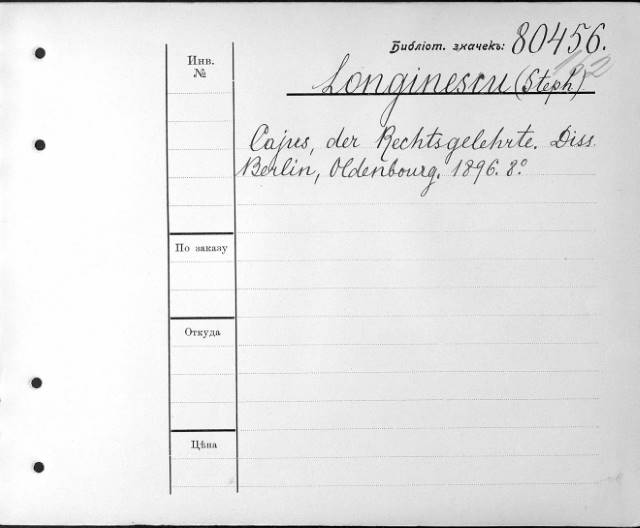 Библіот. значекъ: 80456.
Инв.
№
Longinescu (Steph)
Cajus, der Rechtsgelehrte. Diss.
Berlin, Oldenbourg. 1896. 8º
По заказу
Откуда
Цѣна